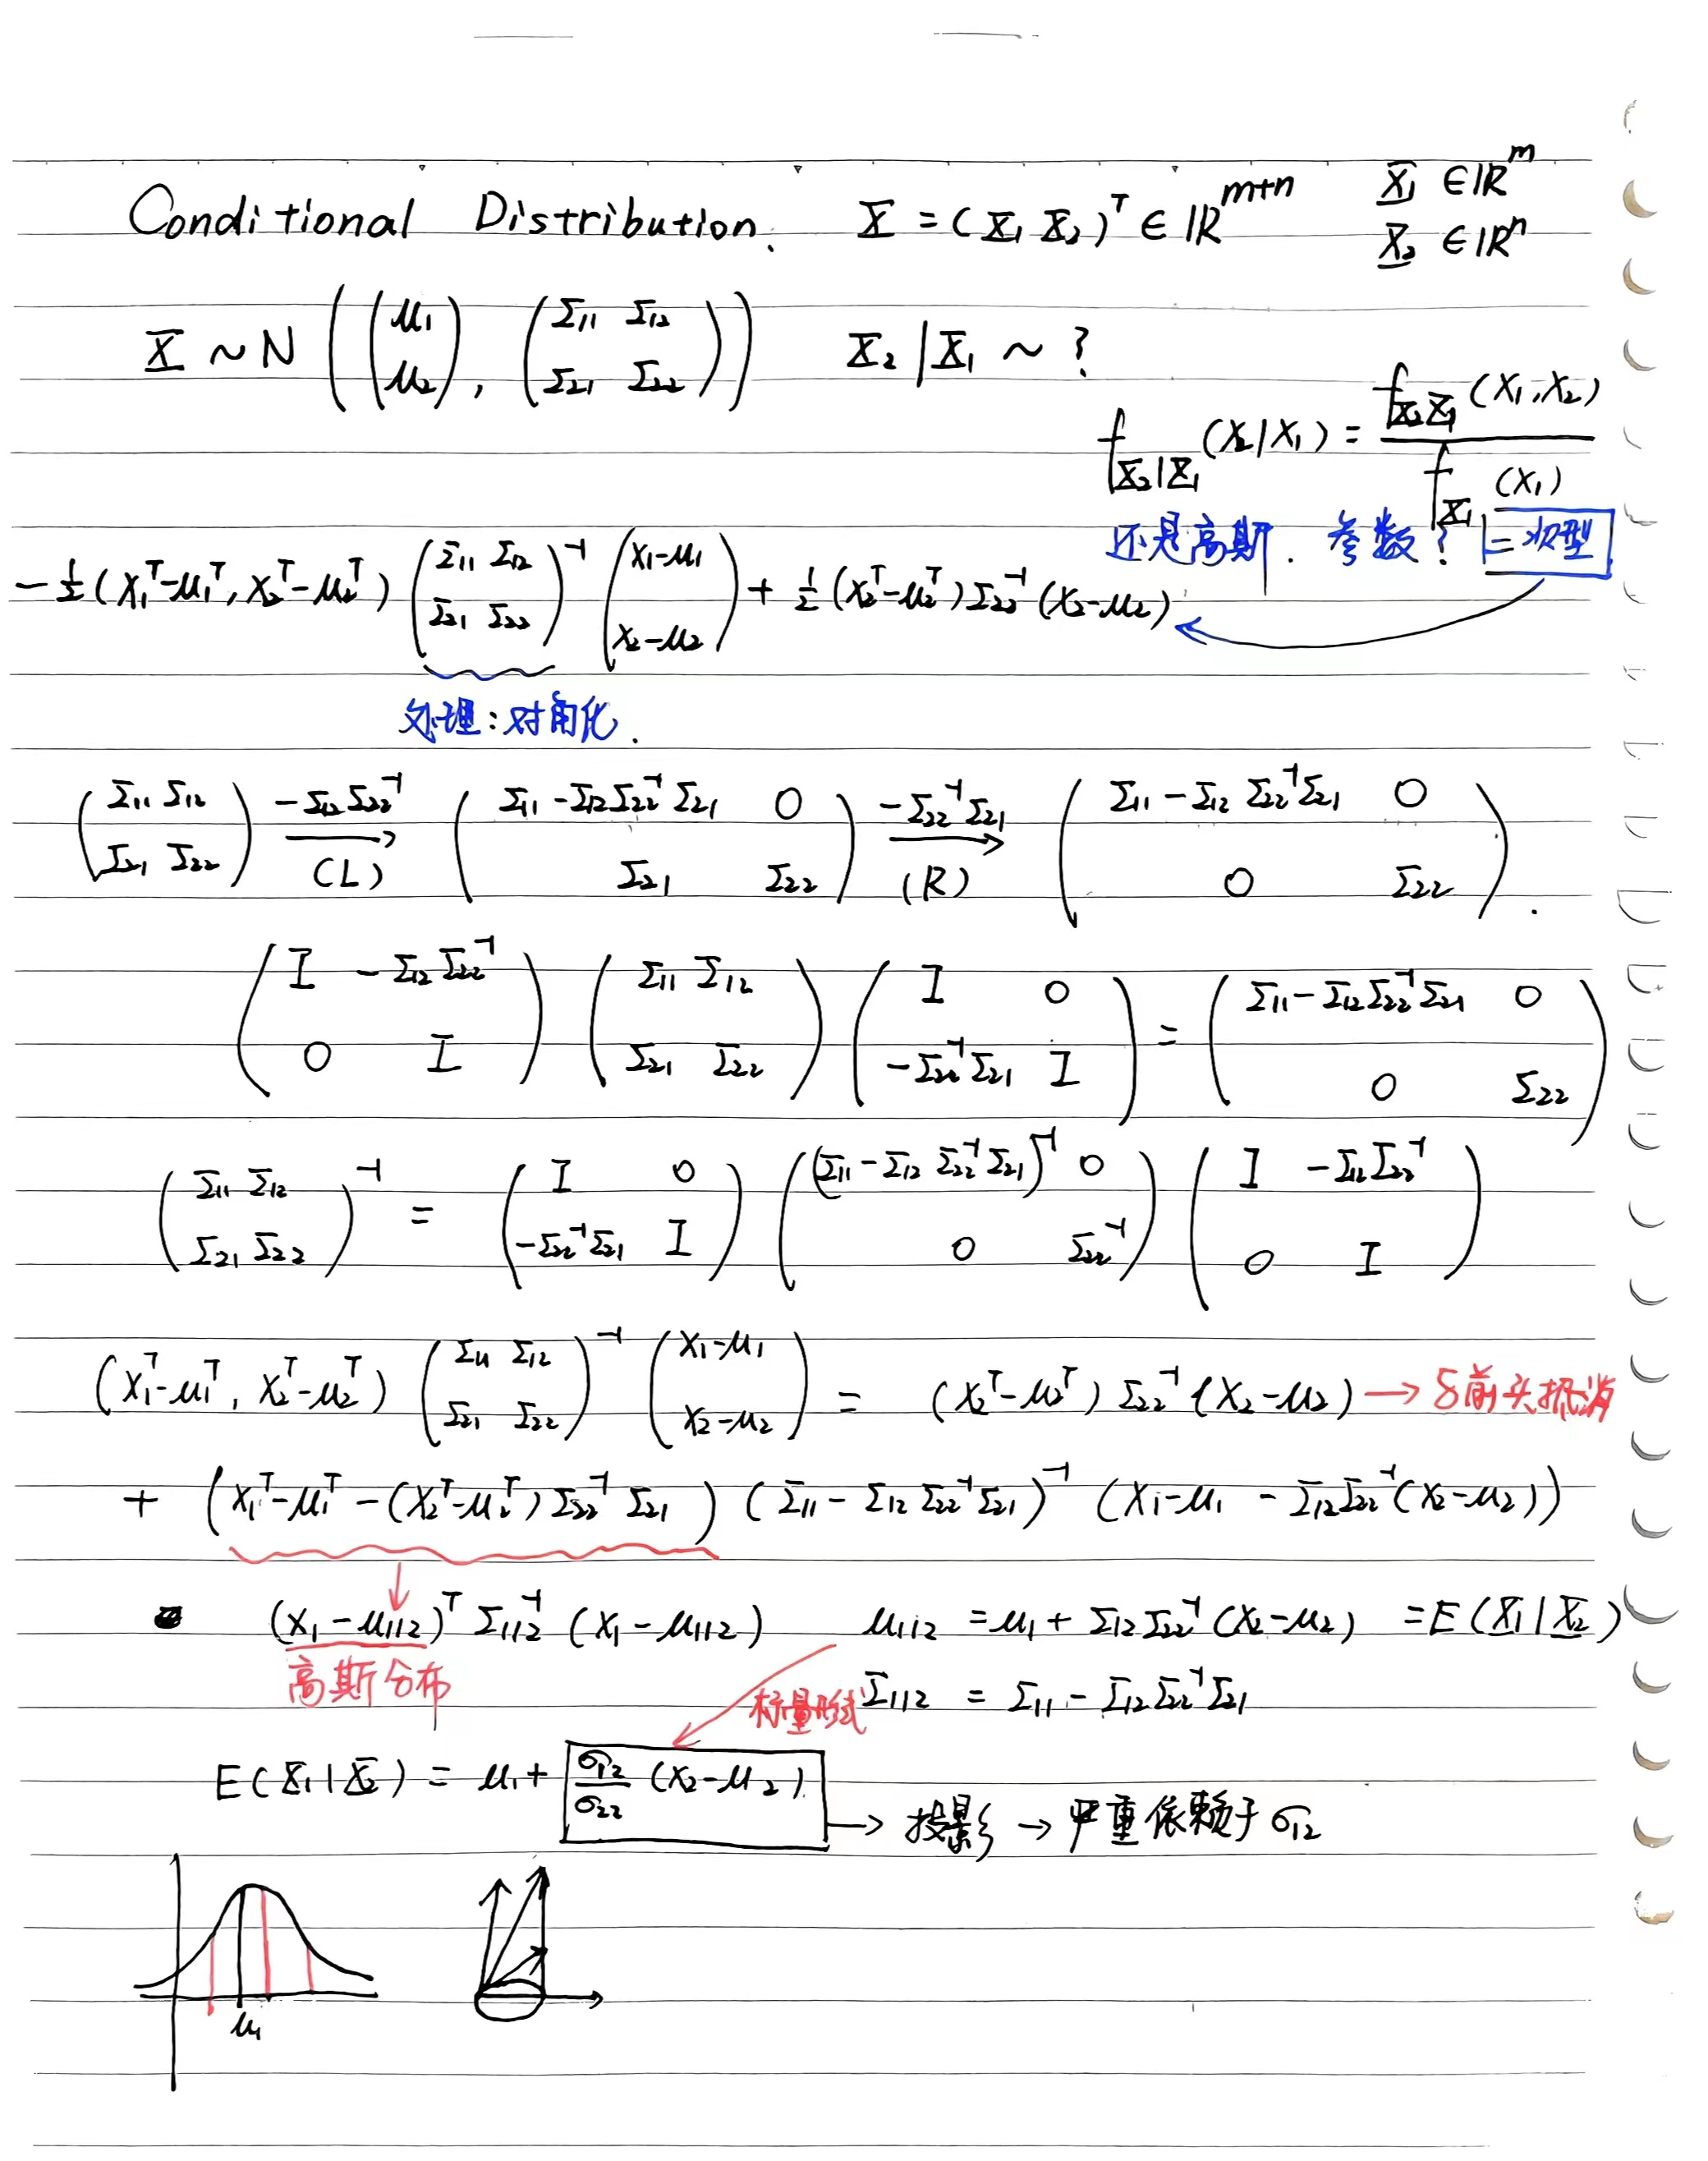 Conditional Distribution. X = (X₁ X₂)ᵀ ∈ ℝᵐ⁺ⁿ X₁ ∈ ℝᵐ
X₂ ∈ ℝⁿ
X ~ N ( (μ₁ ; μ₂), (Σ₁₁ Σ₁₂ ; Σ₂₁ Σ₂₂) ) X₂|X₁ ~ ?
f_{X₂|X₁}(x₂|x₁) = f_{X₂X₁}(x₁,x₂) / f_{X₁}(x₁)
还是高斯. 参数? 二次型
-½(x₁ᵀ-μ₁ᵀ, x₂ᵀ-μ₂ᵀ) (Σ₁₁ Σ₁₂ ; Σ₂₁ Σ₂₂)⁻¹ (x₁-μ₁ ; x₂-μ₂) + ½(x₂ᵀ-μ₂ᵀ)Σ₂₂⁻¹(x₂-μ₂)
处理:对角化.
(Σ₁₁ Σ₁₂ ; Σ₂₁ Σ₂₂) -Σ₁₂Σ₂₂⁻¹ → (L) (Σ₁₁-Σ₁₂Σ₂₂⁻¹Σ₂₁ 0 ; Σ₂₁ Σ₂₂) -Σ₂₂⁻¹Σ₂₁ → (R) (Σ₁₁-Σ₁₂Σ₂₂⁻¹Σ₂₁ 0 ; 0 Σ₂₂).
(I -Σ₁₂Σ₂₂⁻¹ ; 0 I) (Σ₁₁ Σ₁₂ ; Σ₂₁ Σ₂₂) (I 0 ; -Σ₂₂⁻¹Σ₂₁ I) = (Σ₁₁-Σ₁₂Σ₂₂⁻¹Σ₂₁ 0 ; 0 Σ₂₂)
(Σ₁₁ Σ₁₂ ; Σ₂₁ Σ₂₂)⁻¹ = (I 0 ; -Σ₂₂⁻¹Σ₂₁ I) ((Σ₁₁-Σ₁₂Σ₂₂⁻¹Σ₂₁)⁻¹ 0 ; 0 Σ₂₂⁻¹) (I -Σ₁₂Σ₂₂⁻¹ ; 0 I)
(x₁ᵀ-μ₁ᵀ, x₂ᵀ-μ₂ᵀ) (Σ₁₁ Σ₁₂ ; Σ₂₁ Σ₂₂)⁻¹ (x₁-μ₁ ; x₂-μ₂) = (x₂ᵀ-μ₂ᵀ)Σ₂₂⁻¹(x₂-μ₂) → 与前头抵消
+ (x₁ᵀ-μ₁ᵀ-(x₂ᵀ-μ₂ᵀ)Σ₂₂⁻¹Σ₂₁) (Σ₁₁-Σ₁₂Σ₂₂⁻¹Σ₂₁)⁻¹ (x₁-μ₁-Σ₁₂Σ₂₂⁻¹(x₂-μ₂))
(x₁-μ₁|₂)ᵀ Σ₁|₂⁻¹ (x₁-μ₁|₂) μ₁|₂ = μ₁+Σ₁₂Σ₂₂⁻¹(x₂-μ₂) = E(X₁|X₂)
高斯分布 标量形式 Σ₁|₂ = Σ₁₁-Σ₁₂Σ₂₂⁻¹Σ₂₁
E(X₁|X₂) = μ₁+ σ₁₂/σ₂₂ (x₂-μ₂) → 投影 → 严重依赖于σ₁₂
μ₁